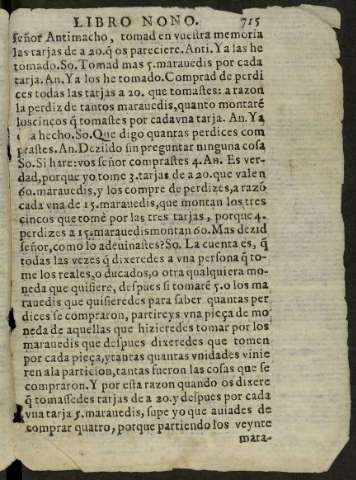 LIBRO NONO. 715
señor Antimacho, tomad en vuestra memoria
las tarjas de a 20. q̃ os pareciere. Anti. Ya las he
tomado. So. Tomad mas 5. marauedis por cada
tarja. An. Ya los he tomado. Comprad de perdi
ces todas las tarjas a 20. que tomastes: a razon
la perdiz de tantos marauedis, quanto montarẽ
los cincos q̃ tomastes por cada vna tarja. An. Ya
a hecho. So. Que digo quantas perdices com
prastes. An. Dezildo sin preguntar ninguna cosa
So. Si hare: vos señor comprastes 4. An. Es ver-
dad, porque yo tome 3. tarjas de a 20. que valen
60. marauedis, y los compre de perdizes, a razõ
cada vna de 15. marauedis, que montan los tres
cincos que tomè por las tres tarjas, porque 4.
perdizes a 15. marauedis montan 60. Mas dezid
señor, como lo adeuinastes? So. La cuenta es, q̃
todas las vezes q̃ dixeredes a vna persona q̃ to-
me los reales, o ducados, o otra qualquiera mo-
neda que quisiere, despues si tomarẽ 5. o los ma
rauedis que quisieredes para saber quantas per
dices se compraron, partireys vna pieça de mo
neda de aquellas que hizieredes tomar por los
marauedis que despues dixeredes que tomen
por cada pieça, y tantas quantas vnidades vinie
ren a la particion, tantas fueron las cosas que se
compraron. Y por esta razon quando os dixere
q̃ tomassedes tarjas de a 20. y despues por cada
vna tarja 5. marauedis, supe yo que auiades de
comprar quatro, porque partiendo los veynte
mara-